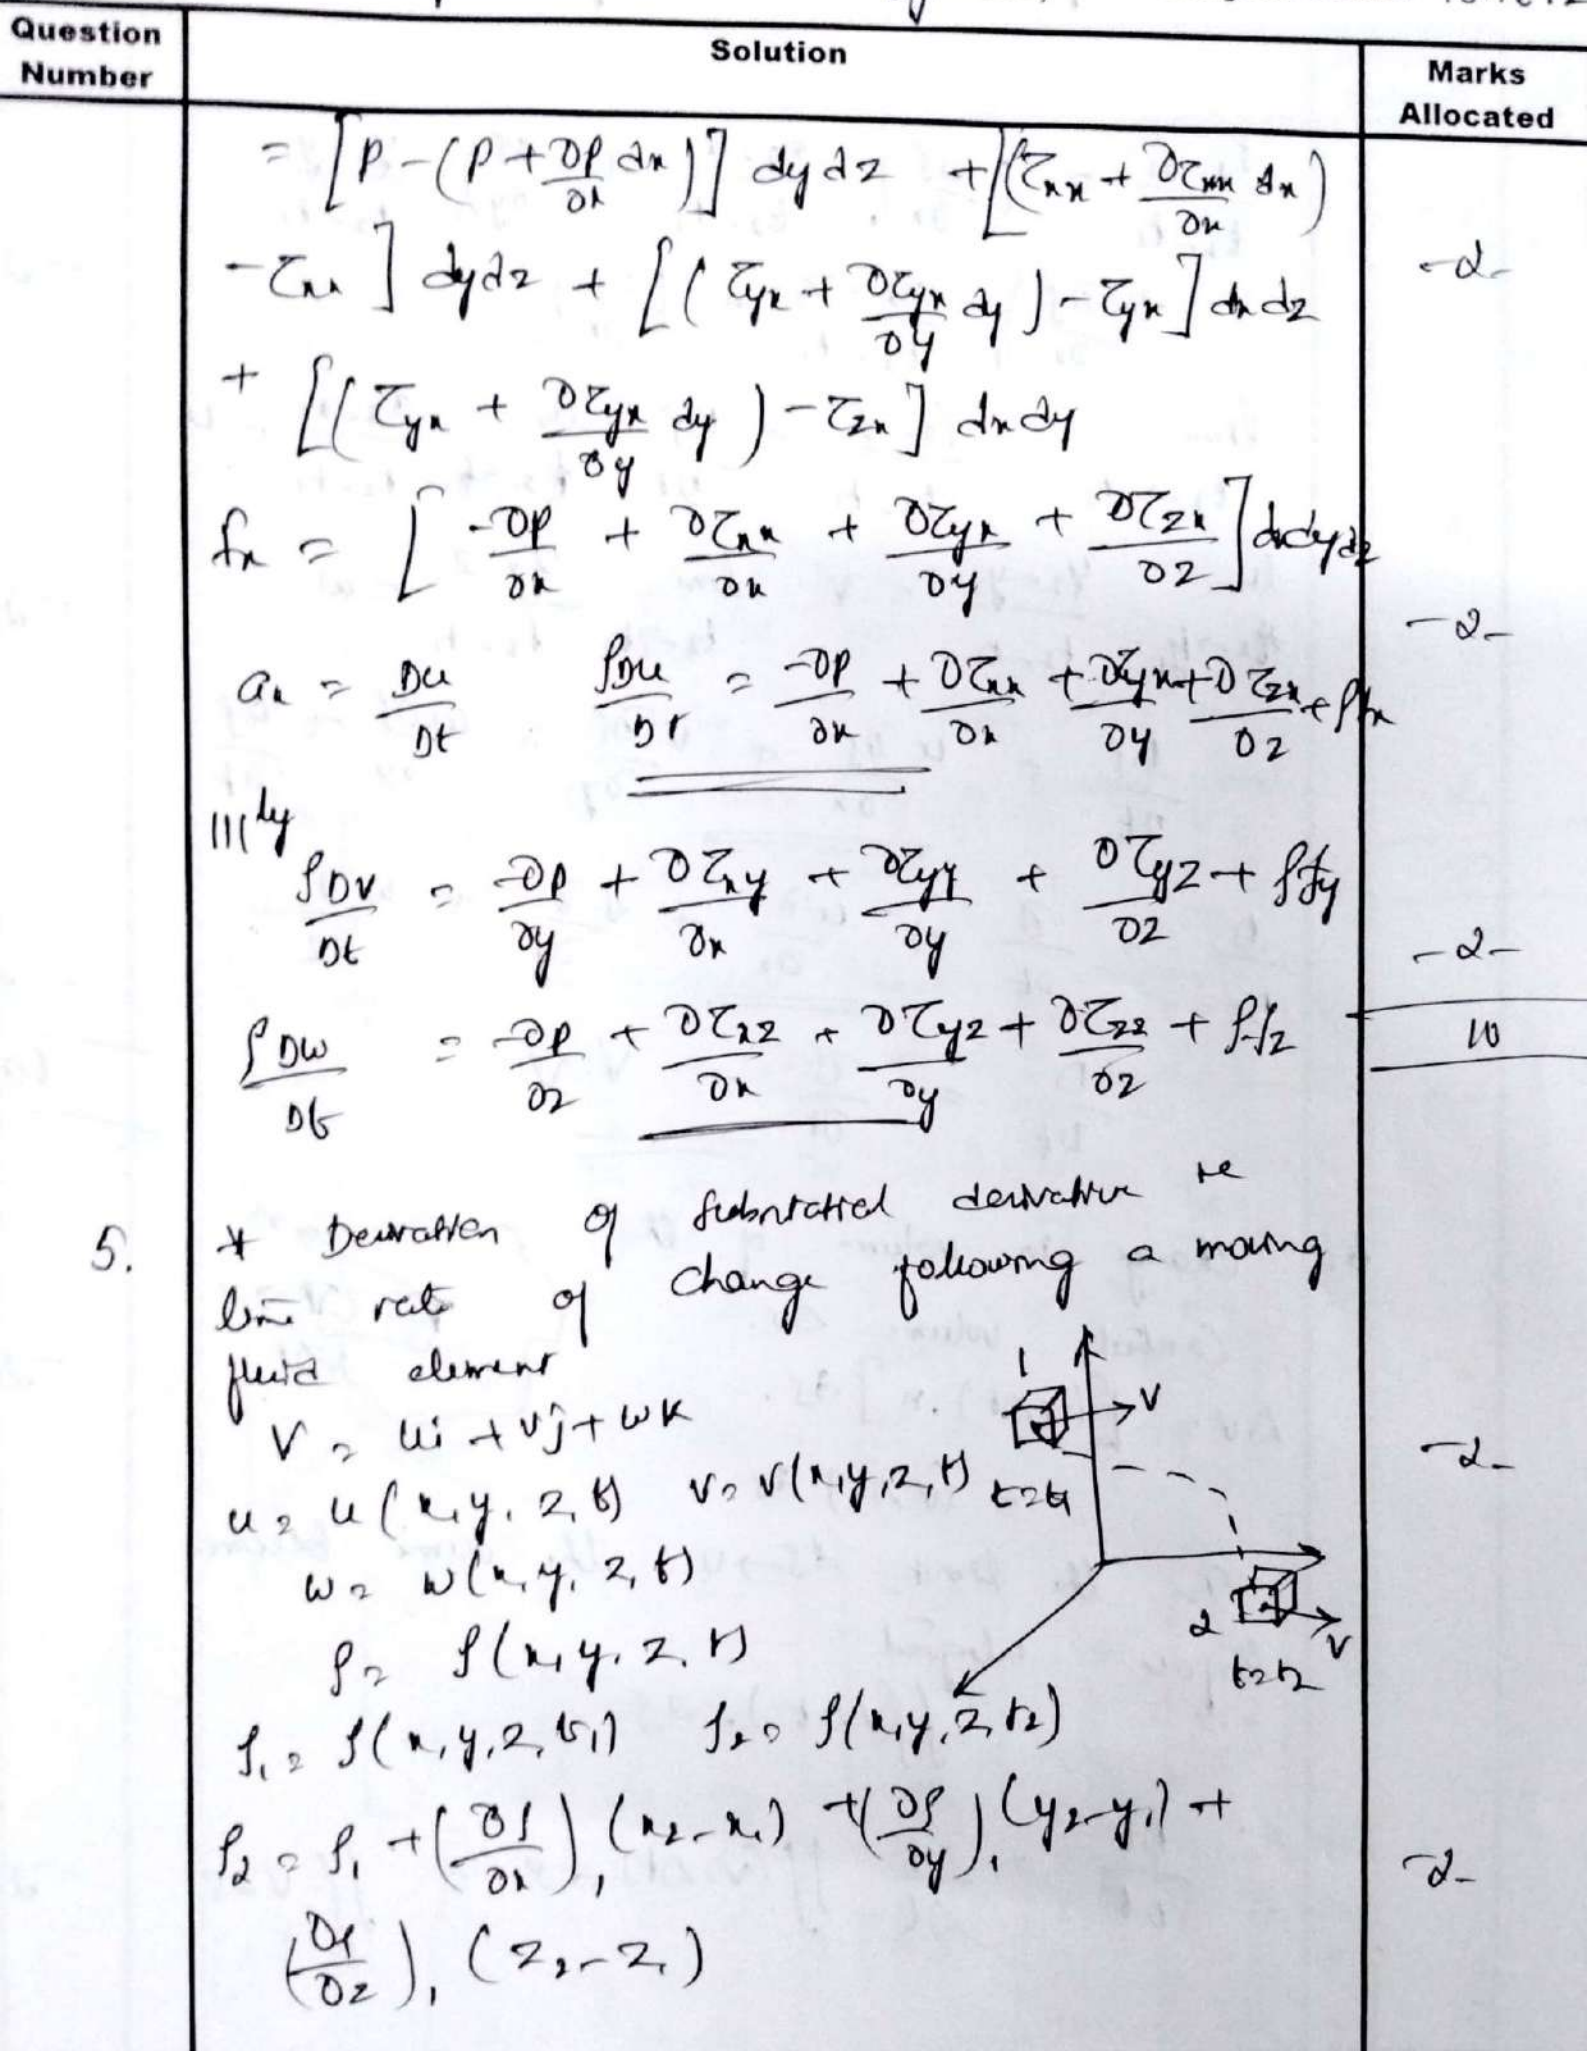 Question Number | Solution | Marks Allocated
= [P - (P + ∂P/∂x dx)] dy dz + [(τxx + ∂τxx/∂x dx)
- τxx] dy dz + [(τyx + ∂τyx/∂y dy) - τyx] dx dz -2-
+ [(τyx + ∂τyx/∂y dy) - τzx] dx dy
fx = [-∂P/∂x + ∂τxx/∂x + ∂τyx/∂y + ∂τzx/∂z] dx dy dz
-2-
ax = Du/Dt ρDu/Dt = -∂P/∂x + ∂τxx/∂x + ∂τyx/∂y + ∂τzx/∂z + ρfx
|||ly
ρDv/Dt = -∂P/∂y + ∂τxy/∂x + ∂τyy/∂y + ∂τyz/∂z + ρfy -2-
ρDw/Dt = -∂P/∂z + ∂τxz/∂x + ∂τyz/∂y + ∂τzz/∂z + ρfz 10
5. * Derivation of substatial derivative ie
time rate of change following a moving
fluid element
V = ui + vj + wk
1 V
u = u(x,y,z,t) v = v(x,y,z,t) t=t1 -2-
w = w(x,y,z,t)
2 V
t=t2
ρ = ρ(x,y,z,t)
ρ1 = ρ(x,y,z,t1) ρ2 = ρ(x,y,z,t2)
ρ2 = ρ1 + (∂ρ/∂x)1 (x2-x1) + (∂ρ/∂y)1 (y2-y1) + -2-
(∂ρ/∂z)1 (z2-z1)